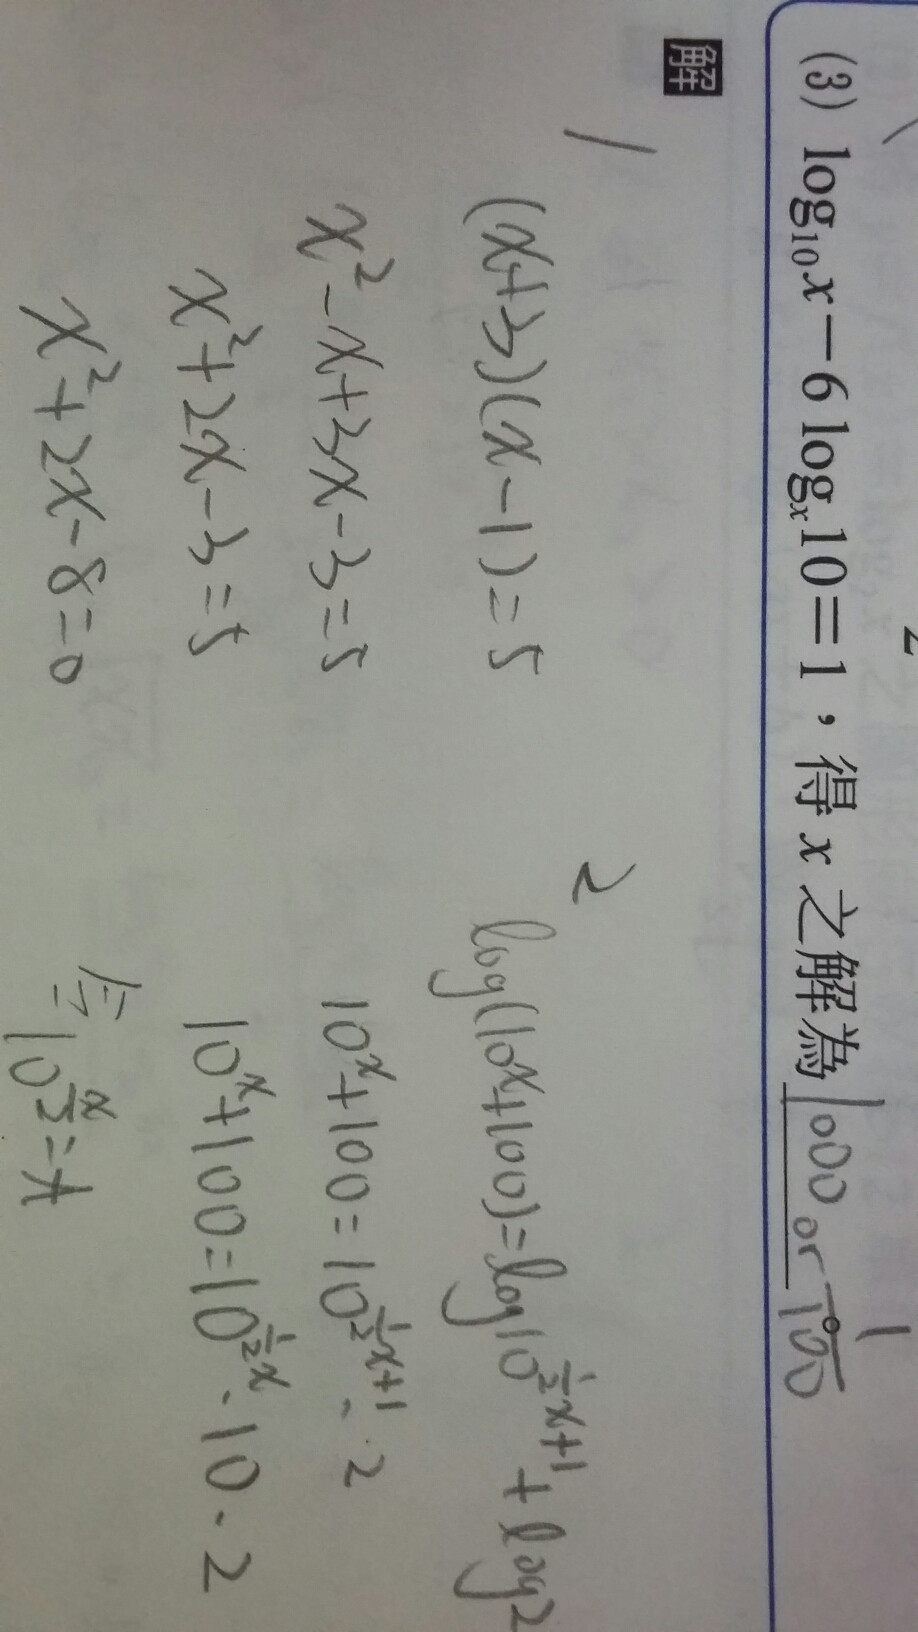 (3) log₁₀x－6 logₓ10＝1，得 x 之解為 1000 or 1/100
解
1
(x+3)(x-1)=5
x²-x+3x-3=5
x²+2x-3=5
x²+2x-8=0
2
log(10ˣ+100)=log10^(½x+1)+log2
10ˣ+100=10^(½x+1)·2
10ˣ+100=10^(½x)·10·2
令10^(x/2)=t